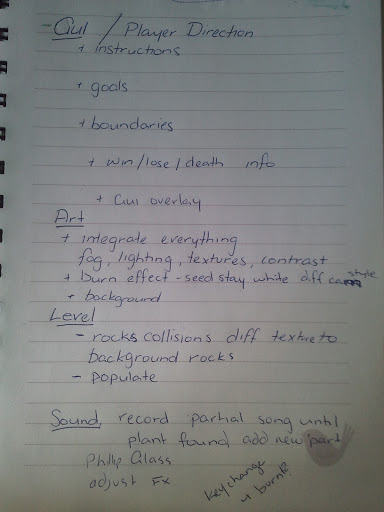 - GUI / Player Direction
+ instructions
+ goals
+ boundaries
+ win/lose/death info
+ GUI overlay
Art
+ integrate everything
fog, lighting, textures, contrast
+ burn effect - seed stay white diff style
+ background
Level
- rocks collisions diff texture to
background rocks
- populate
Sound, record partial song until
plant found add new part
Philip Glass
adjust FX
key change
w burn?